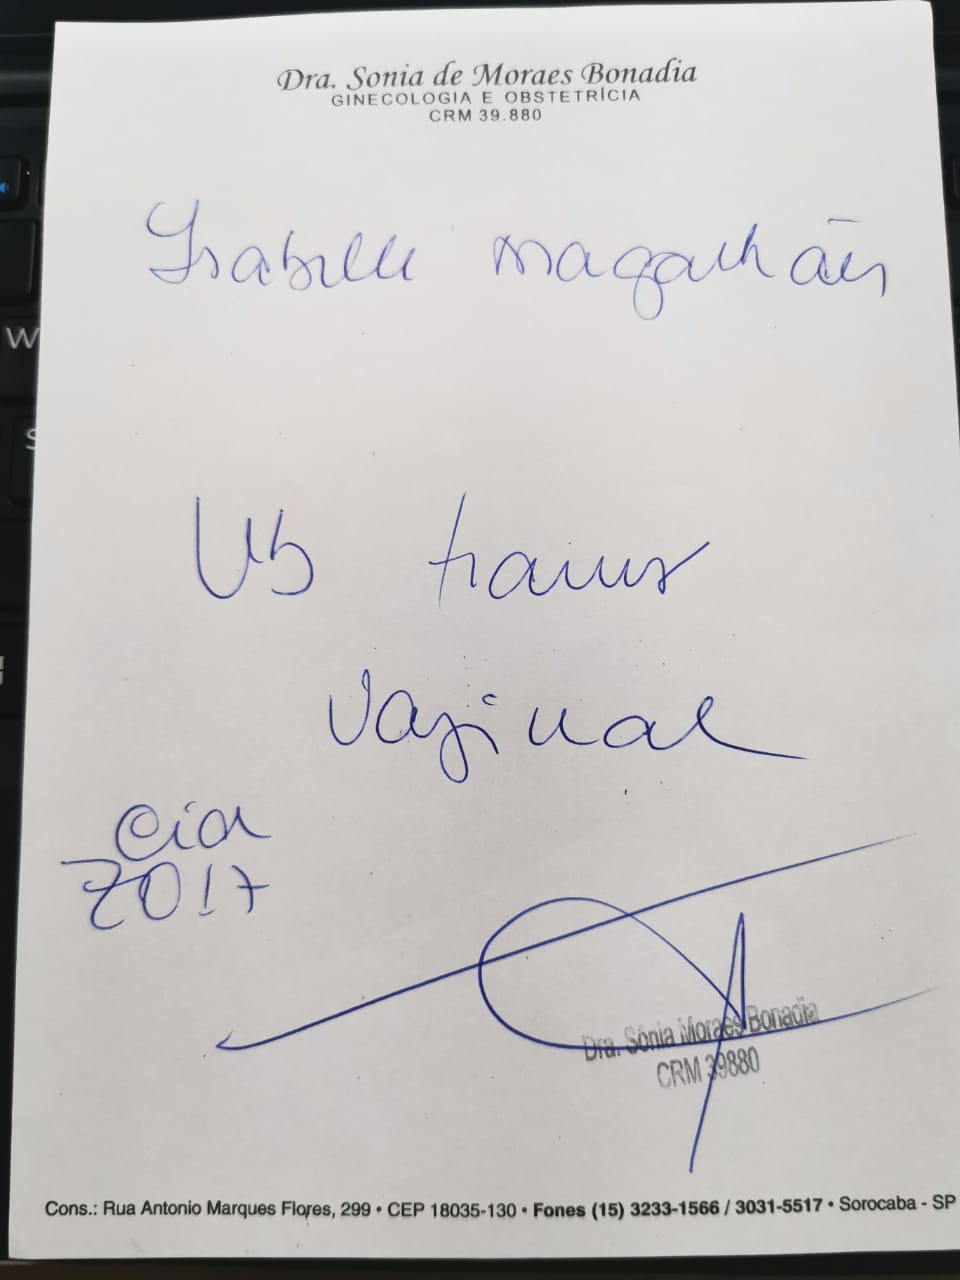 Dra. Sonia de Moraes Bonadia
GINECOLOGIA E OBSTETRÍCIA
CRM 39.880
Isabelle Magalhães
US trans
vaginal
CID
Z017
Dra. Sônia Moraes Bonadia
CRM 39880
Cons.: Rua Antonio Marques Flores, 299 • CEP 18035-130 • Fones (15) 3233-1566 / 3031-5517 • Sorocaba - SP
W
S